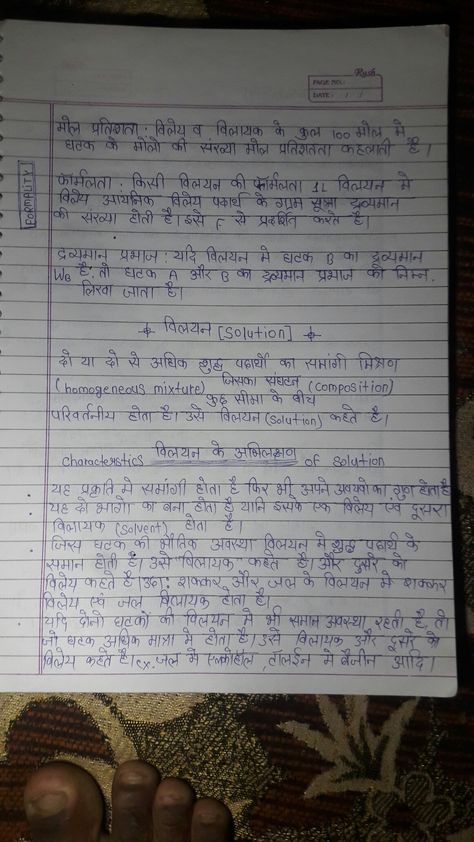 Rush
PAGE NO.:
DATE: / /
मोल प्रतिशतता : विलेय व विलायक के कुल 100 मोल में
घटक के मोलों की संख्या मोल प्रतिशतता कहलाती है।
FORMALITY
फॉर्मलता : किसी विलयन की फॉर्मलता 1L विलयन में
विलेय आयनिक विलेय पदार्थ के ग्राम सूत्र द्रव्यमान
की संख्या होती है। इसे F से प्रदर्शित करते है।
द्रव्यमान प्रभाज : यदि विलयन में घटक B का द्रव्यमान
WB है. तो घटक A और B का द्रव्यमान प्रभाज को निम्न.
लिखा जाता है।
विलयन [Solution]
दो या दो से अधिक शुद्ध पदार्थों का समांगी मिश्रण
(homogeneous mixture) जिसका संघटन (composition)
कुछ सीमा के बीच
परिवर्तनीय होता है। उसे विलयन (solution) कहते है।
characteristics विलयन के अभिलक्षण of solution
यह प्रकृति में समांगी होता है फिर भी अपने अवयवो का गुण होता है
यह दो भागो का बना होता है यानि इसके एक विलेय एवं दूसरा
विलायक (solvent) होता है।
जिस घटक की भौतिक अवस्था विलयन में शुद्ध पदार्थ के
समान होती है। उसे विलायक कहते है। और दूसरे को
विलेय कहते है। उदा: शक्कर और जल के विलयन में शक्कर
विलेय एवं जल विलायक होता है।
यदि दोनो घटकों की विलयन में भी समान अवस्था रहती है, तो
जो घटक अधिक मात्रा में होता है। उसे विलायक और दूसरे को
विलेय कहते है। ex. जल में एल्कोहॉल, टॉलूईन में बैंजीन आदि।